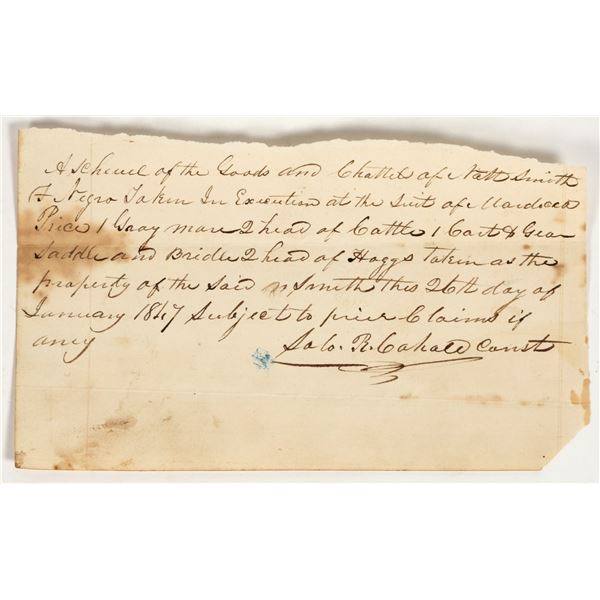 A scheuel of the Goods and Chattel of Natt Smith
F Negro Taken In Execution at the Suit of
Price 1 Gray mare 2 head of Cattle 1 Cart & Gear
Saddle and Bridle 2 head of Hoggs taken as the
property of the said n Smith this 26th day of
January 1847 Subject to prier Claims if
aney Solo. R. Cahall Const